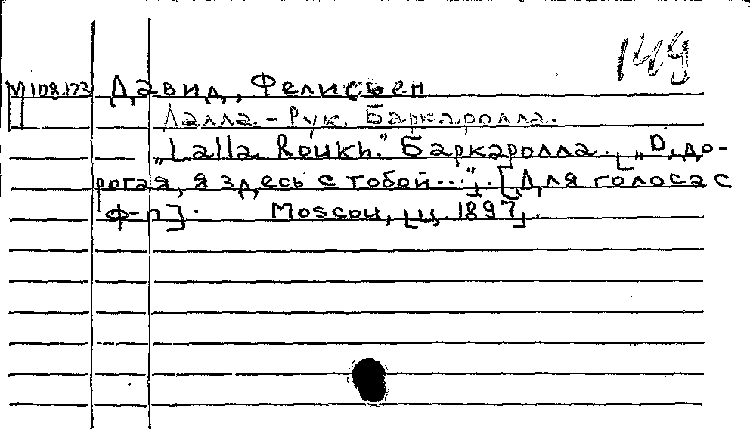 149
М 108173 Давид, Фелисьен
Лалла-Рук. Баркаролла.
„Lalla Roukh." Баркаролла. [„О, до-
рогая, я здесь с тобой..."]. [Для голоса с
ф-п]. Moscou, [ц. 1897].